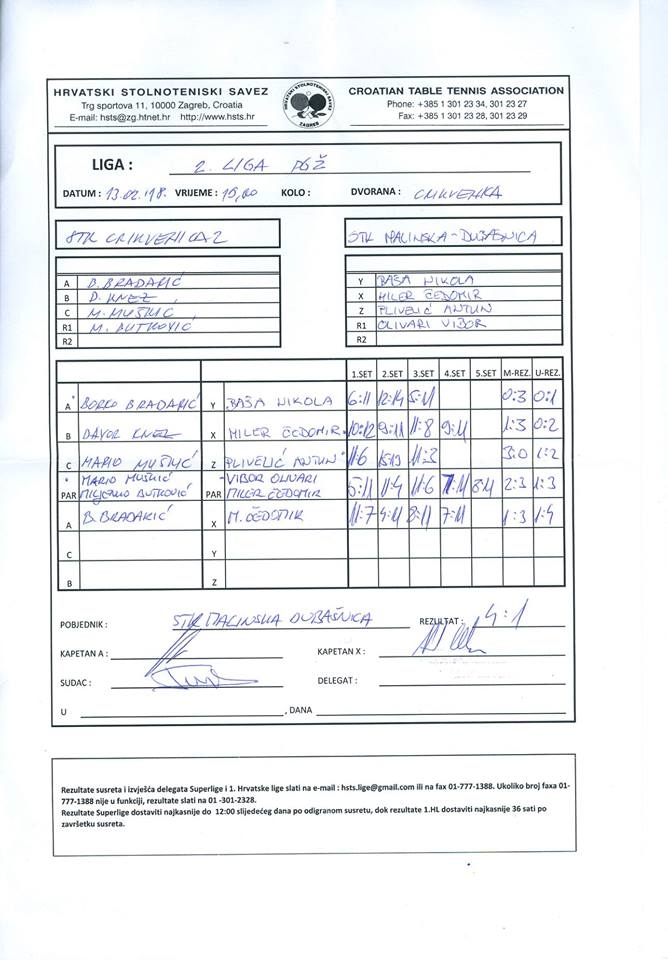 HRVATSKI STOLNOTENISKI SAVEZ
Trg sportova 11, 10000 Zagreb, Croatia
E-mail: hsts@zg.htnet.hr http://www.hsts.hr
HRVATSKI STOLNOTENISKI SAVEZ
ZAGREB
CROATIAN TABLE TENNIS ASSOCIATION
Phone: +385 1 301 23 34, 301 23 27
Fax: +385 1 301 23 28, 301 23 29
LIGA : 2. LIGA PGŽ
DATUM : 13.02.'18. VRIJEME : 19,00 KOLO : DVORANA : CRIKVENICA
STK CRIKVENICA 2
STK MALINSKA-DUBAŠNICA
A B. BRADARIĆ
B D. KNEZ
C M. MUŠKIĆ
R1 M. BUTKOVIĆ
R2
Y BAŠA NIKOLA
X MILER ČEDOMIR
Z PLIVELIĆ ANTUN
R1 OLIVARI VIBOR
R2
1.SET 2.SET 3.SET 4.SET 5.SET M-REZ. U-REZ.
A BORKO BRADARIĆ Y BAŠA NIKOLA 6:11 12:14 5:11 0:3 0:1
B DAVOR KNEZ X MILER ČEDOMIR 10:12 9:11 11:8 9:11 1:3 0:2
C MARIO MUŠKIĆ Z PLIVELIĆ ANTUN 11:6 11:3 3:0 1:2
PAR MARIO MUŠKIĆ
MILJENKO BUTKOVIĆ PAR VIBOR OLIVARI
MILER ČEDOMIR 5:11 11:4 11:6 7:11 8:11 2:3 1:3
A B. BRADARIĆ X M. ČEDOMIR 11:7 4:11 8:11 7:11 1:3 1:4
C Y
B Z
POBJEDNIK : STK MALINSKA DUBAŠNICA REZULTAT : 4:1
KAPETAN A : KAPETAN X :
SUDAC : DELEGAT :
U , DANA
Rezultate susreta i izvješća delegata Superlige i 1. Hrvatske lige slati na e-mail : hsts.lige@gmail.com ili na fax 01-777-1388. Ukoliko broj faxa 01-
777-1388 nije u funkciji, rezultate slati na 01 -301-2328.
Rezultate Superlige dostaviti najkasnije do 12:00 slijedećeg dana po odigranom susretu, dok rezultate 1.HL dostaviti najkasnije 36 sati po
završetku susreta.